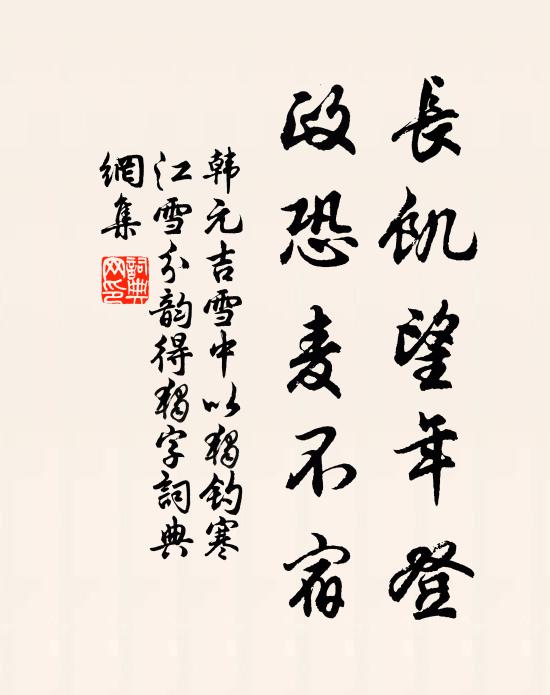 長飢望年登
政恐麦不宿
韩元吉雪中以獨釣寒
江雪分韵得獨字詞典
網集
詞典网印